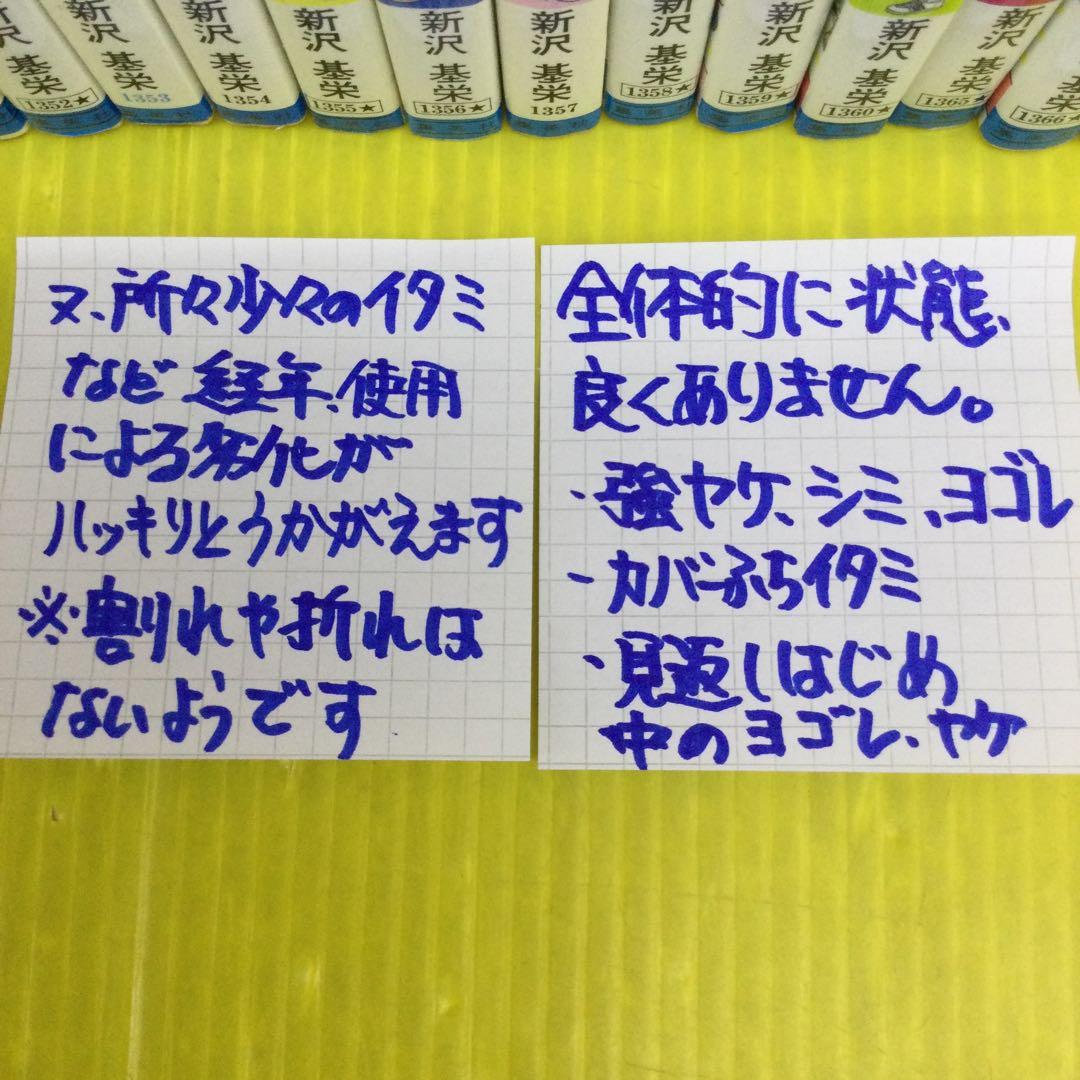 新沢 基栄
1352★
新沢 基栄
1353
新沢 基栄
1354
新沢 基栄
1355★
新沢 基栄
1356★
新沢 基栄
1357
新沢 基栄
1358★
新沢 基栄
1359★
新沢 基栄
1360★
新沢 基栄
1365★
基栄
1366★
全体的に状態、
良くありません。
・強ヤケ、シミ、ヨゴレ
・カバーふちイタミ
・見返しはじめ
中のヨゴレ、ヤケ
又、所々少々のイタミ
など経年、使用
による劣化が
ハッキリとうかがえます
※割れや折れは
ないようです